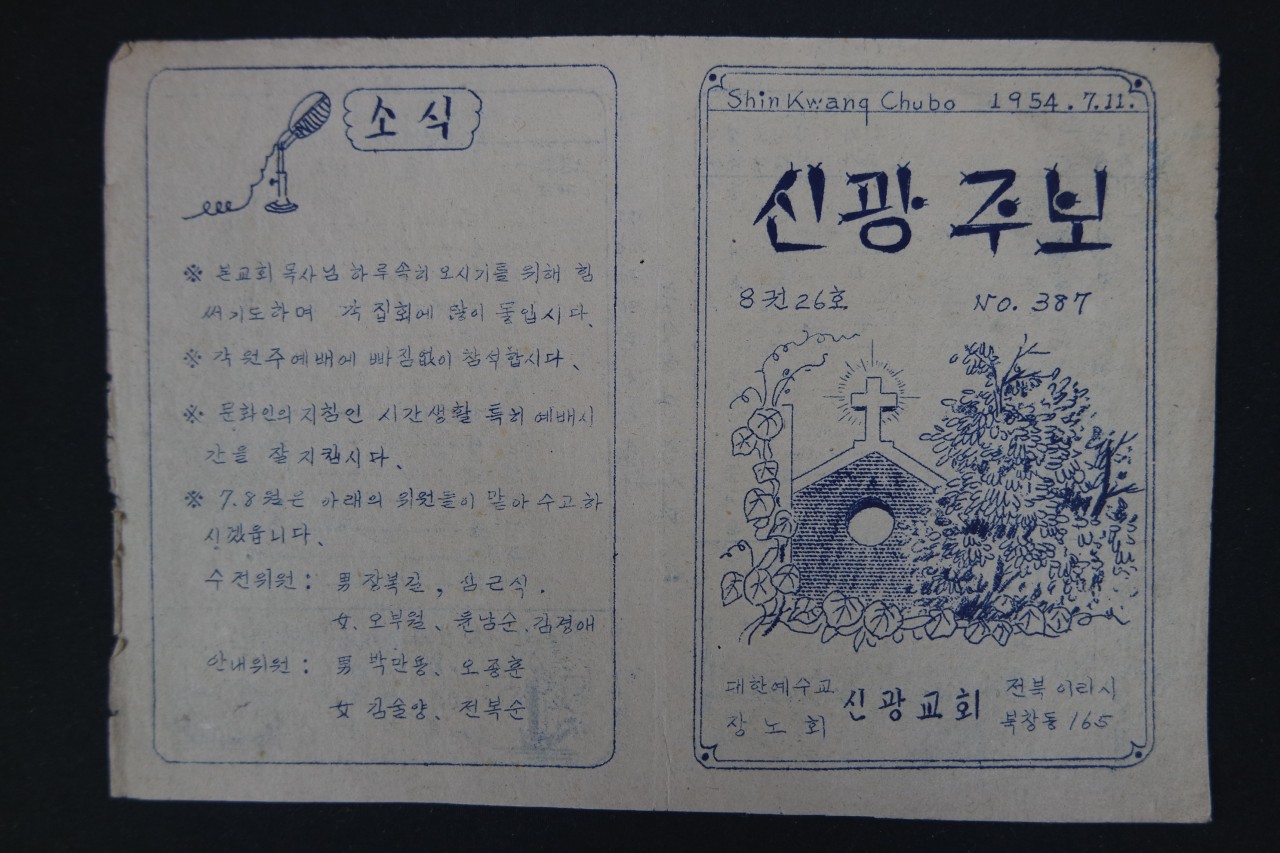 소식
※ 본교회 목사님 하루속히 오시기를 위해 힘
써기도하며 각 집회에 많이 몰입시다.
※ 각 원주예배에 빠짐없이 참석합시다.
※ 문화인의 지침인 시간생활 특히 예배시
간을 잘 지킵시다.
※ 7.8월은 아래의 위원들이 맡아 수고하
시겠읍니다.
수전위원 : 男 장복길, 심근식.
女. 오부월、윤남순、김경애
안내위원 : 男 박만용、오종훈
女 김술양、전복순
Shin Kwang Chubo 1954.7.11.
신광 주보
8권 26호 No. 387
대한예수교 장노회 신광교회 전북 이리시 북창동 165